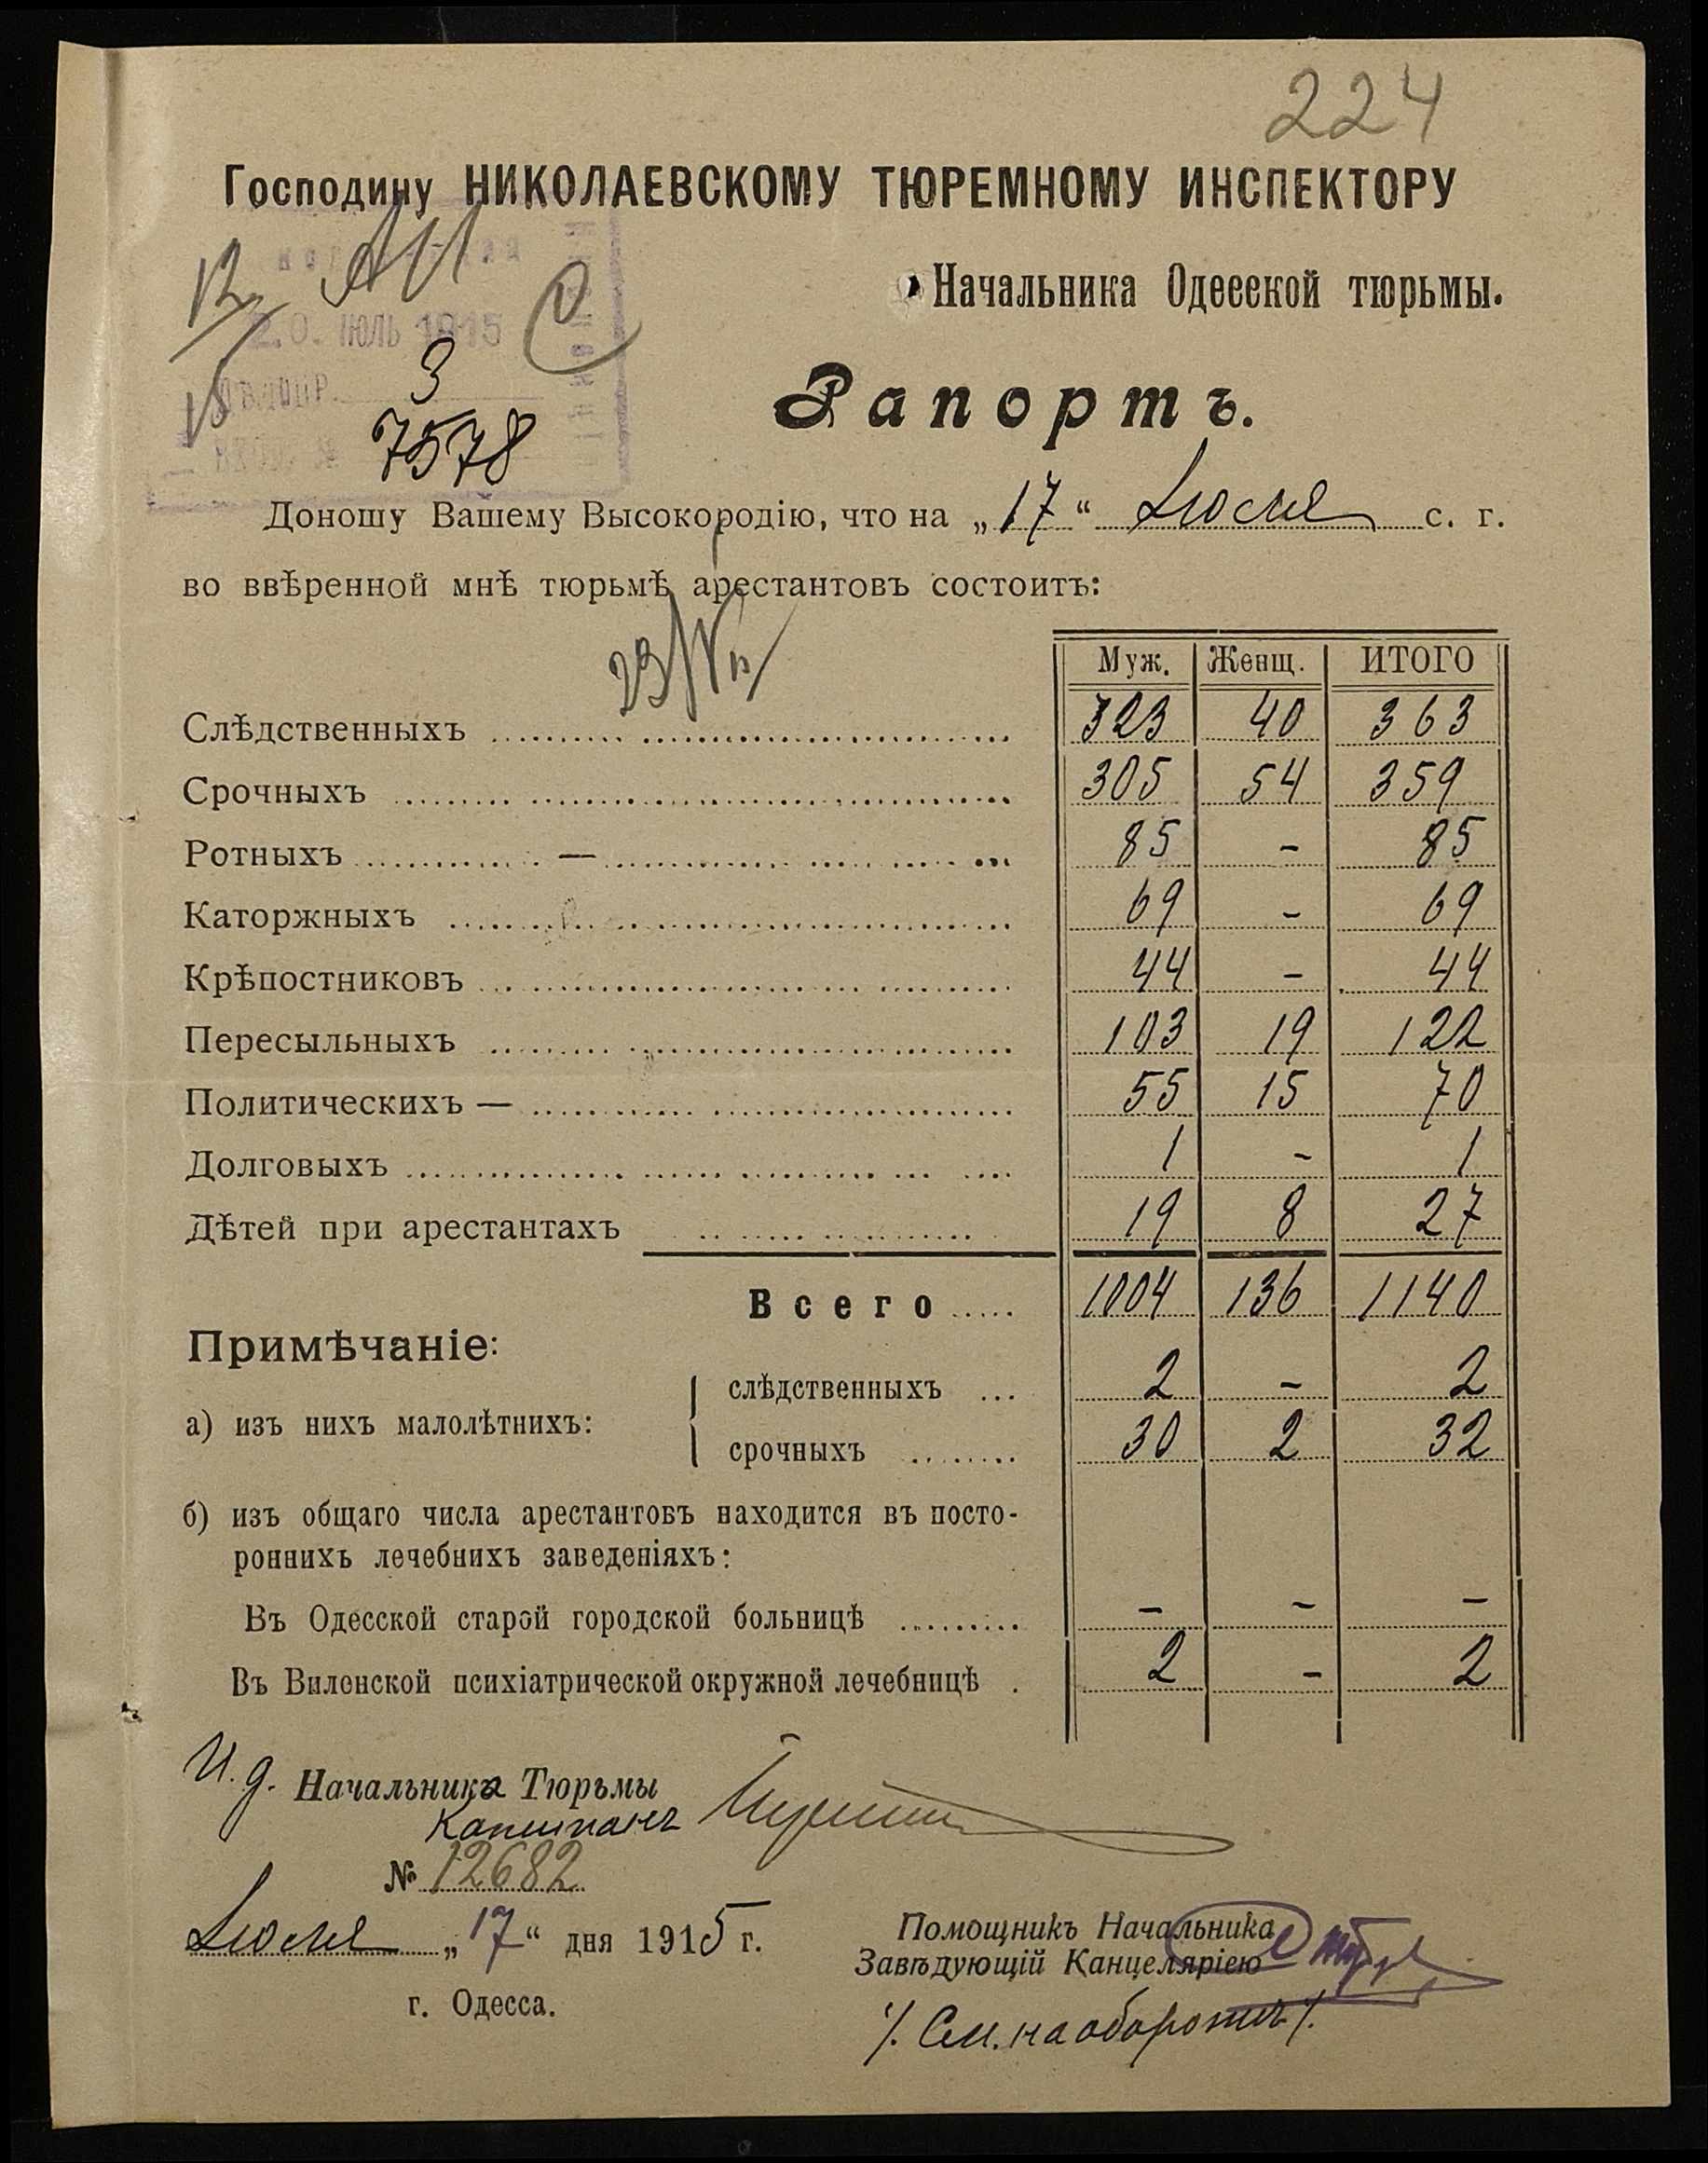 224
Господину НИКОЛАЕВСКОМУ ТЮРЕМНОМУ ИНСПЕКТОРУ
Начальника Одесской тюрьмы.
20. ІЮЛЬ 1915
3
7578
Рапортъ.
Доношу Вашему Высокородію, что на „17“ Іюля с. г.
во ввѣренной мнѣ тюрьмѣ арестантовъ состоитъ:
Муж. Женщ. ИТОГО
Слѣдственныхъ 323 40 363
Срочныхъ 305 54 359
Ротныхъ — 85 - 85
Каторжныхъ 69 - 69
Крѣпостниковъ 44 - 44
Пересыльныхъ 103 19 122
Политическихъ — 55 15 70
Долговыхъ 1 - 1
Дѣтей при арестантахъ 19 8 27
Всего 1004 136 1140
Примѣчаніе:
а) изъ нихъ малолѣтнихъ:
слѣдственныхъ 2 - 2
срочныхъ 30 2 32
б) изъ общаго числа арестантовъ находится въ посто-
роннихъ лечебнихъ заведеніяхъ:
Въ Одесской старой городской больницѣ - - -
Въ Виленской психіатрической окружной лечебницѣ 2 - 2
И. д. Начальника Тюрьмы
Капитанъ
№ 12682
Іюля „17“ дня 1915 г.
г. Одесса.
Помощникъ Начальника
Завѣдующій Канцеляріею
/. См. на оборотѣ /.